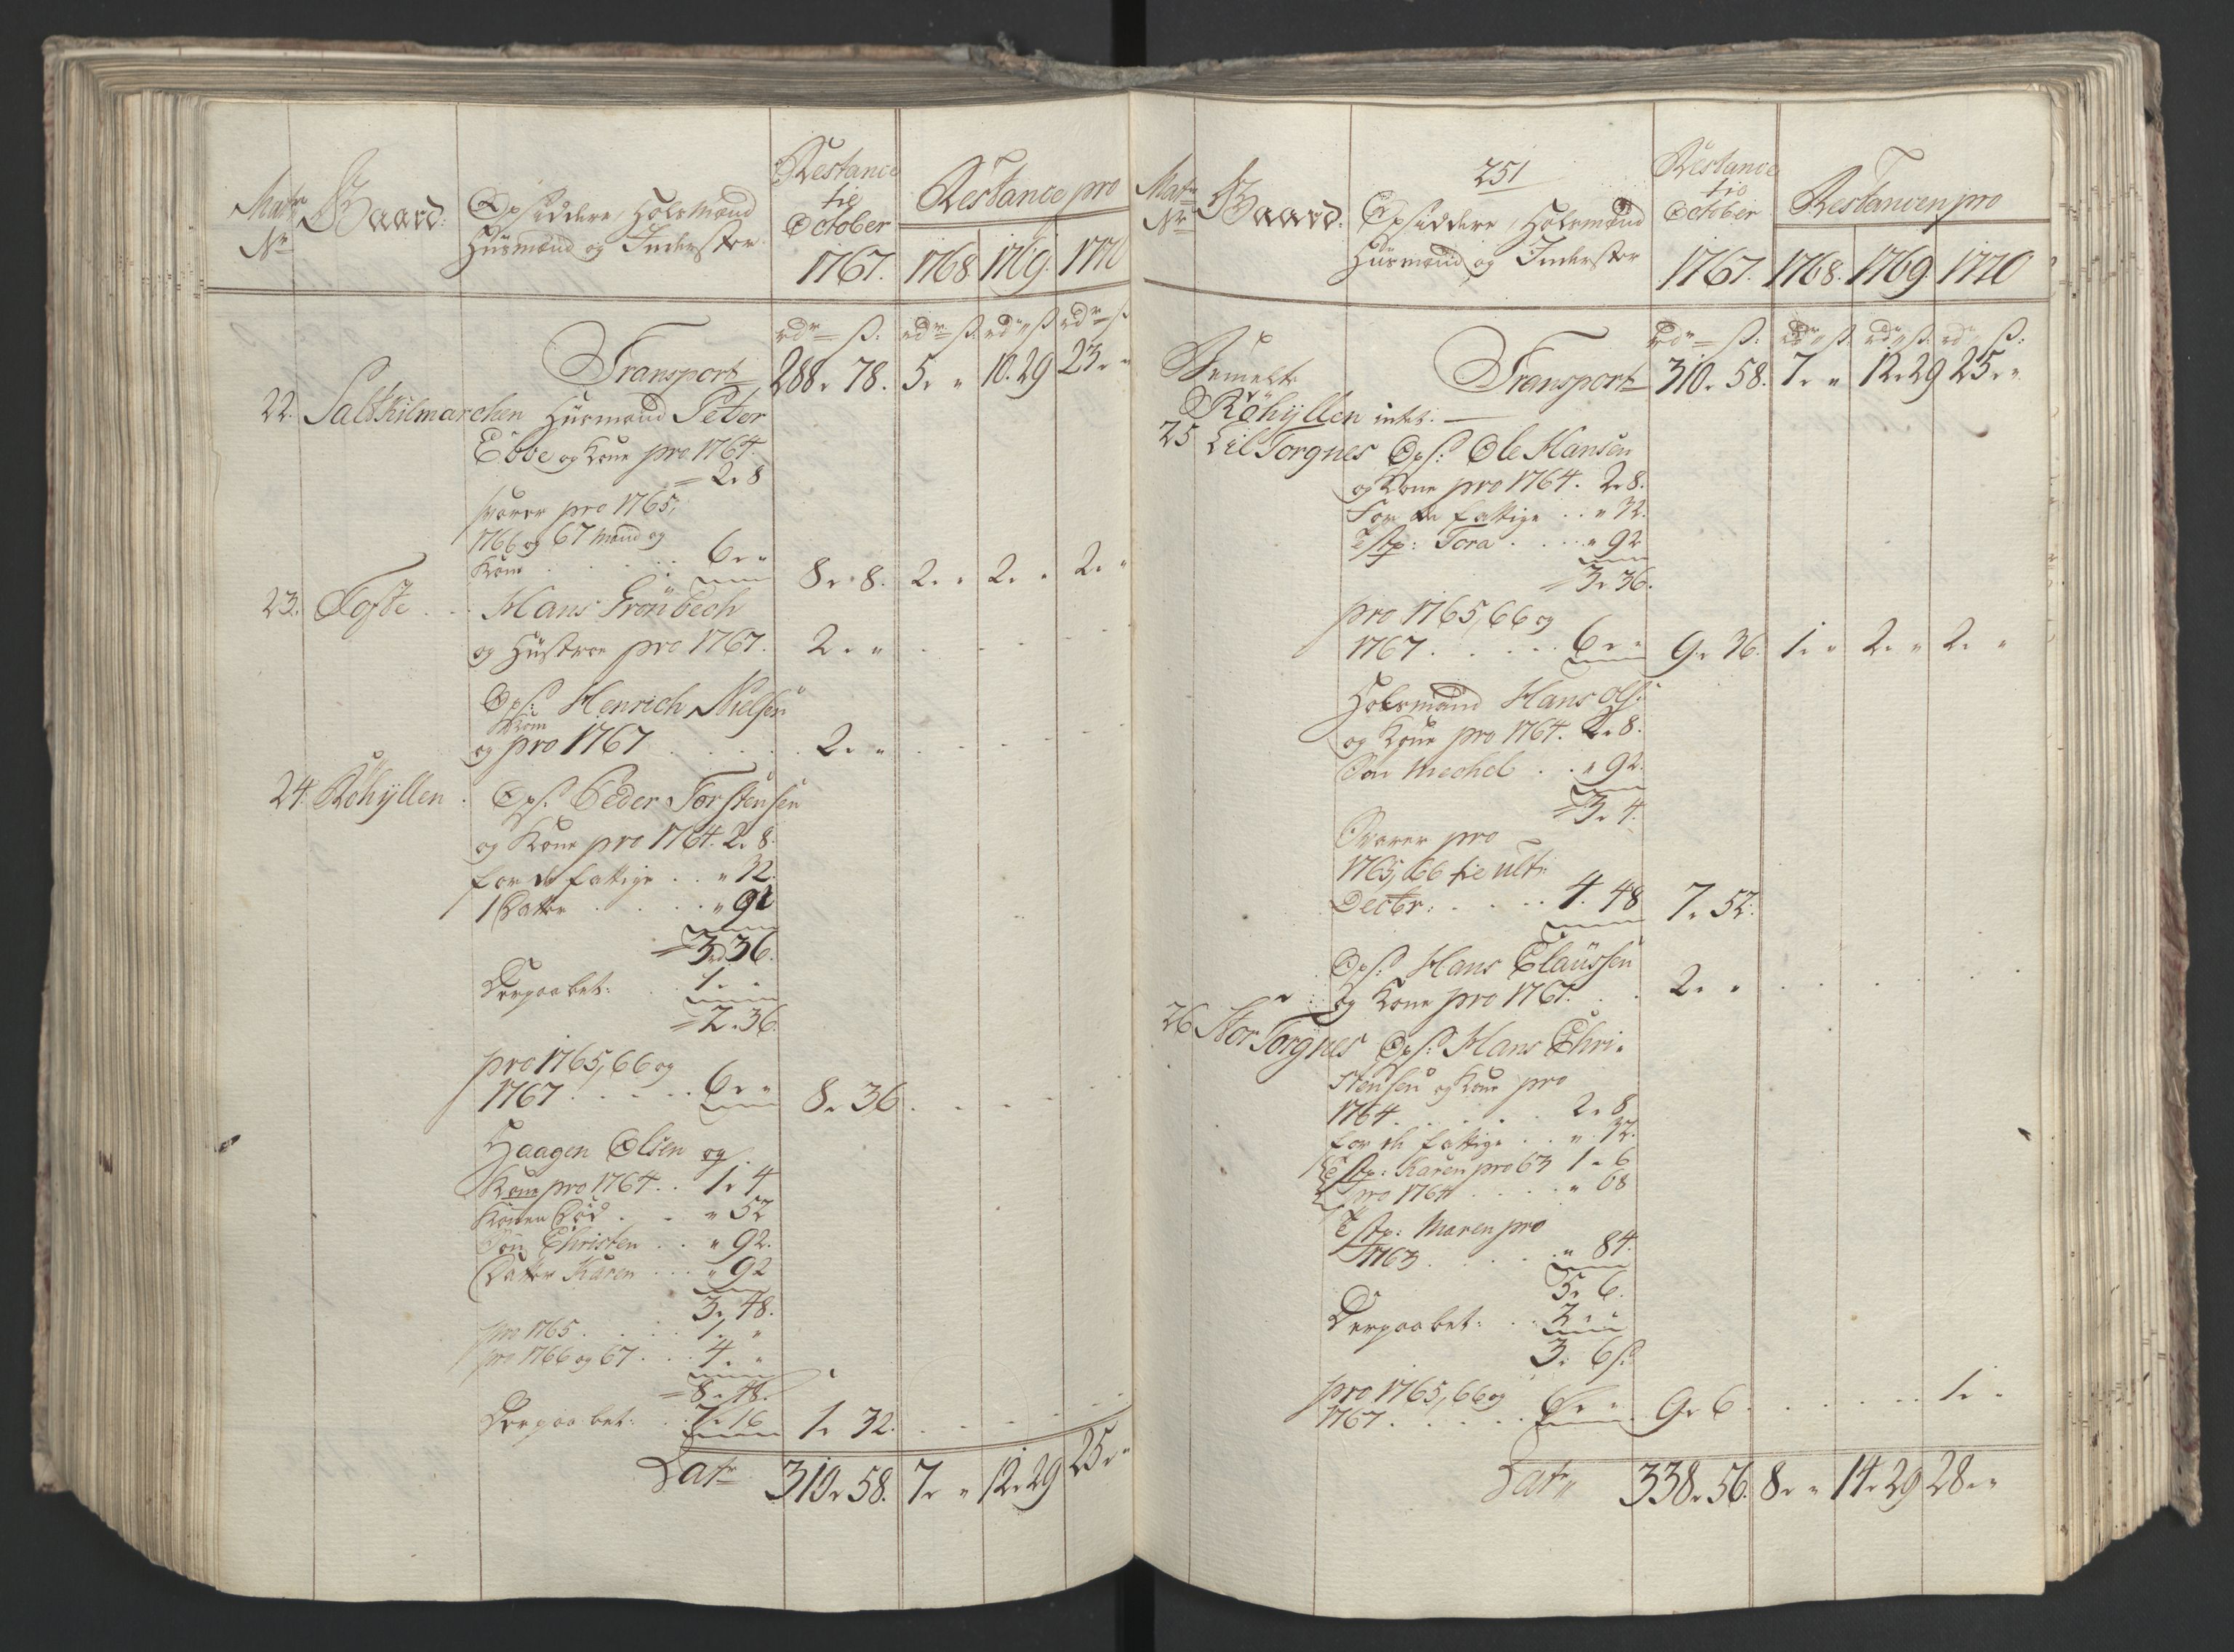 Matr Nr
Gaard:
Opsiddere, Holsmænd
Huusmænd og Inderster
Restance til October 1767.
Restance pro
1768. 1769. 1770
rdr ß. rdr ß. rd ß rdr ß
Transport 288 „ 78. 5 „ „ 10. 29 23 „ „
22. Saltkilmarchen Huusmand Peter
Ebbe og Kone pro 1764.
2 „ 8
svarer pro 1765,
1766 og 67 Mand og
Kone . . . . . 6 „ „ 8 „ 8. 2 „ „ 2 „ „ 2 „ „
23. Tofte . . Hans Grönbech
og Hustroe pro 1767. 2 „ „
Ops: Henrich Nielsen
Kone
og pro 1767 . . . . 2 „ „
24. Röhyllen . Ops: Peder Torstensen
og Kone pro 1764. 2 „ 8.
for de fattige . . „ 32.
1 Datter . . . . „ 92
3 „ 36.
Derpaa bet: . . 1 „ „
2 „ 36
pro 1765, 66 og
1767 . . . . . 6 „ „ 8 „ 36
Haagen Olsen og
Kone pro 1764 . . 1 „ 4
Konen Död . . „ 52
Sön Christen . . „ 92.
Datter Karen . . . „ 92
3 „ 48.
pro 1765 . . . . 1 „ „
pro 1766 og 67 . . . 4 „ „
8 „ 48.
Derpaa bet: . . 7 „ 16 1 „ 32.
Latr 310 „ 58. 7 „ „ 12 „ 29 25 „ „
251
Matr Nr
Gaard:
Opsiddere, Holsmænd
Huusmænd og Inderster
Restance til October 1767.
Restancen pro
1768. 1769. 1770
rdr ß. rdr ß. rd ß. rd ß.
Transport 310 „ 58. 7 „ „ 12 „ 29 25 „ „
Bemelte
Röhyllen intet. —
25 Lil Torgnes Ops: Ole Hansen
og Kone pro 1764. 2 „ 8.
for de fattige . . „ 32.
Tora . . . . „ 92
3 „ 36.
pro 1765, 66 og
1767 . . . . . 6 „ „ 9 „ 36. 1 „ „ 2 „ „ 2 „ „
Holsmand Hans Ols:
og Kone pro 1764. 2 „ 8.
Sön Mechel . . „ 92.
3 „ 4.
Svarer pro
1765, 66 til ult:
Decbr: . . . . 4. 48 7 „ 52.
Ops: Hans Claussen
og Kone pro 1767. . . 2 „ „
26 Stor Torgnes Ops: Hans Chri-
stensen og Kone pro
1764 . . . . . . 2 „ 8
for de fattige . . „ 32.
Karen pro 63 1 „ 6
pro 1764 . . . . „ 68
Maren pro
1763 . . . . . „ 84.
5 „ 6.
Derpaa bet: . . 2 „ „
3 „ 6 ß.
pro 1765, 66 og
1767 . . . . . 6 „ „ 9 „ 6 . . . . . . 1 „ „
Latr 338 „ 56. 8 „ „ 14 „ 29 28 „ „